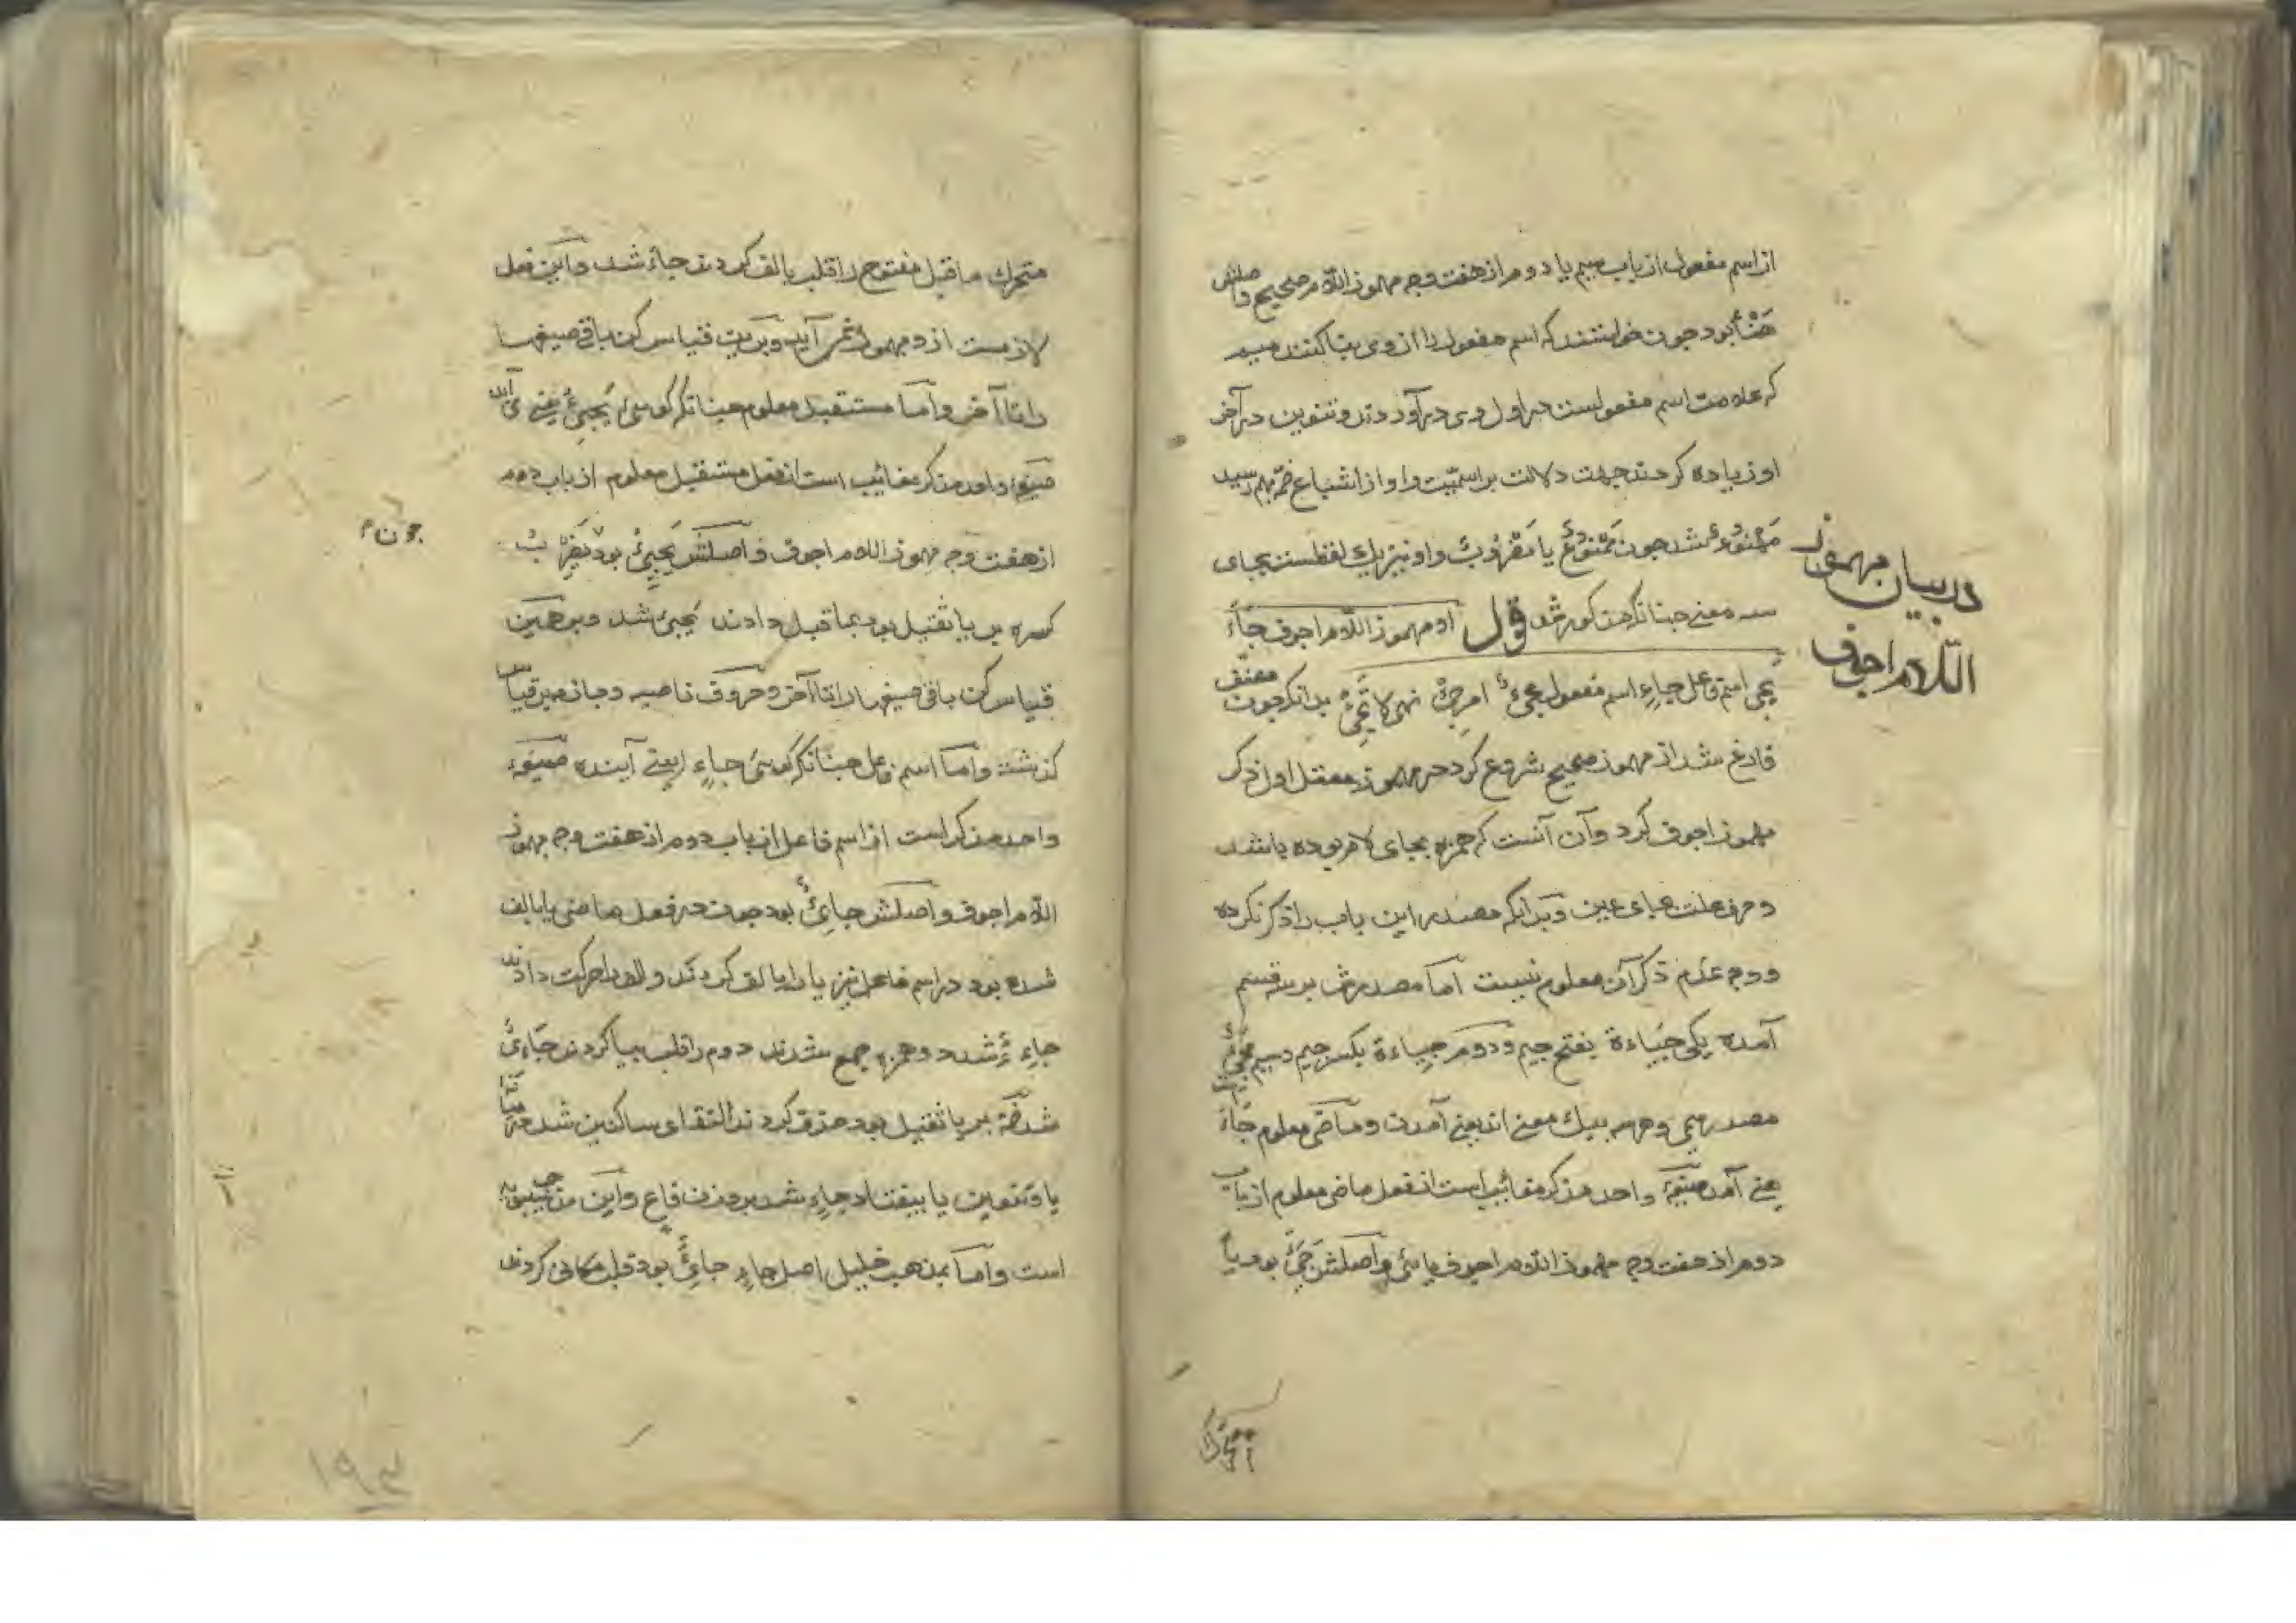 از اسم مفعول از باب سیم یا دوم از هفت وجه مهموز اللام صحیح واصلش
هَنْأً بود چون خواستند که اسم مفعول را از وی بنا کنند میم
که علامت اسم مفعولست در اول وی در آوردند و تنوین در آخر
او زیاده کردند جهت دلالت بر اسمیّت و واو از اشباع ضمّه بهم رسید
مَهْنُوءٌ شد چون مَمْنُوعٌ یا مَضْرُوبٌ و او نیز یک لفظست بجای
سه معنی چنانکه مذکور شد قول او مهموز اللام اجوف جَاءَ
یَجِیُٔ اسم فاعل جَاءٍ اسم مفعول مجیٔ امر جِیْٔ نهی لا تَجِیْٔ بدانکه چون مصنّف
فارغ شد از مهموز صحیح شروع کرد در مهموز معتل اول ذکر
مهموز اجوف کرد و آن آنست که همزه بجای لام بوده باشد
و حرف علت بجای عین و بدانکه مصدر این باب را ذکر نکرده
و وجه عدم ذکر آن معلوم نیست امّا مصدرش بر سه قسم
آمده یکی جَیاءة بفتح جیم و دوم جِیاءة بکسر جیم و سیم
مصدر میمی و هر سه بیک معنی اند یعنی آمدن و ماضی معلوم جَاءَ
یعنی آمد صیغهٔ واحد مذکر مغائب است از فعل ماضی معلوم از باب
دوم از هفت وجه مهموز اللام اجوف یائی و اصلش جَیَأَ بود یا
در بیان مهموز
اللام اجوف
متحرک ما قبل مفتوح را قلب بالف کردند جاءَ شد و این فعل
لازمست از و مجهول نمی آید و برین قیاس کن باقی صیغها
را تا آخر و امّا مستقبل معلوم چنانکه گوئی یَجِیُٔ یعنی می آید
صیغهٔ واحد مذکر مغائب است از فعل مستقبل معلوم از باب دوم
از هفت وجه مهموز اللام اجوف و اصلش یَجْیِیُٔ بود
چون
کسره بر یا ثقیل بود بما قبل دادند یَجِیُٔ شد و برهمین
قیاس کن باقی صیغها را تا آخر و حروف ناصبه و جازمه بر قیاس
گذشته و امّا اسم فاعل چنانکه گوئی جَاءٍ یعنی آینده صیغهٔ
واحد مذکر است از اسم فاعل از باب دوم از هفت وجه مهموز
اللام اجوف و اصلش جایِئٌ بود چون در فعل ماضی یا بالف
شده بود در اسم فاعل نیز یا را بالف کردند و الف را حرکت دادند
جاءِءٌ شد دو همزه جمع شدند دوم را قلب بیا کردند جَاءِیٌ
شد ضمّه بر یا ثقیل بود حذف کردند التقای ساکنین شد میانهٔ
یا و تنوین یا بیفتاد جاءٍ شد بر وزن فاعٍ و این مذهب سیبویه
است و امّا بمذهب خلیل اصل جاءٍ جایِئٌ بود قلب مکانی کردند
۱۹۳